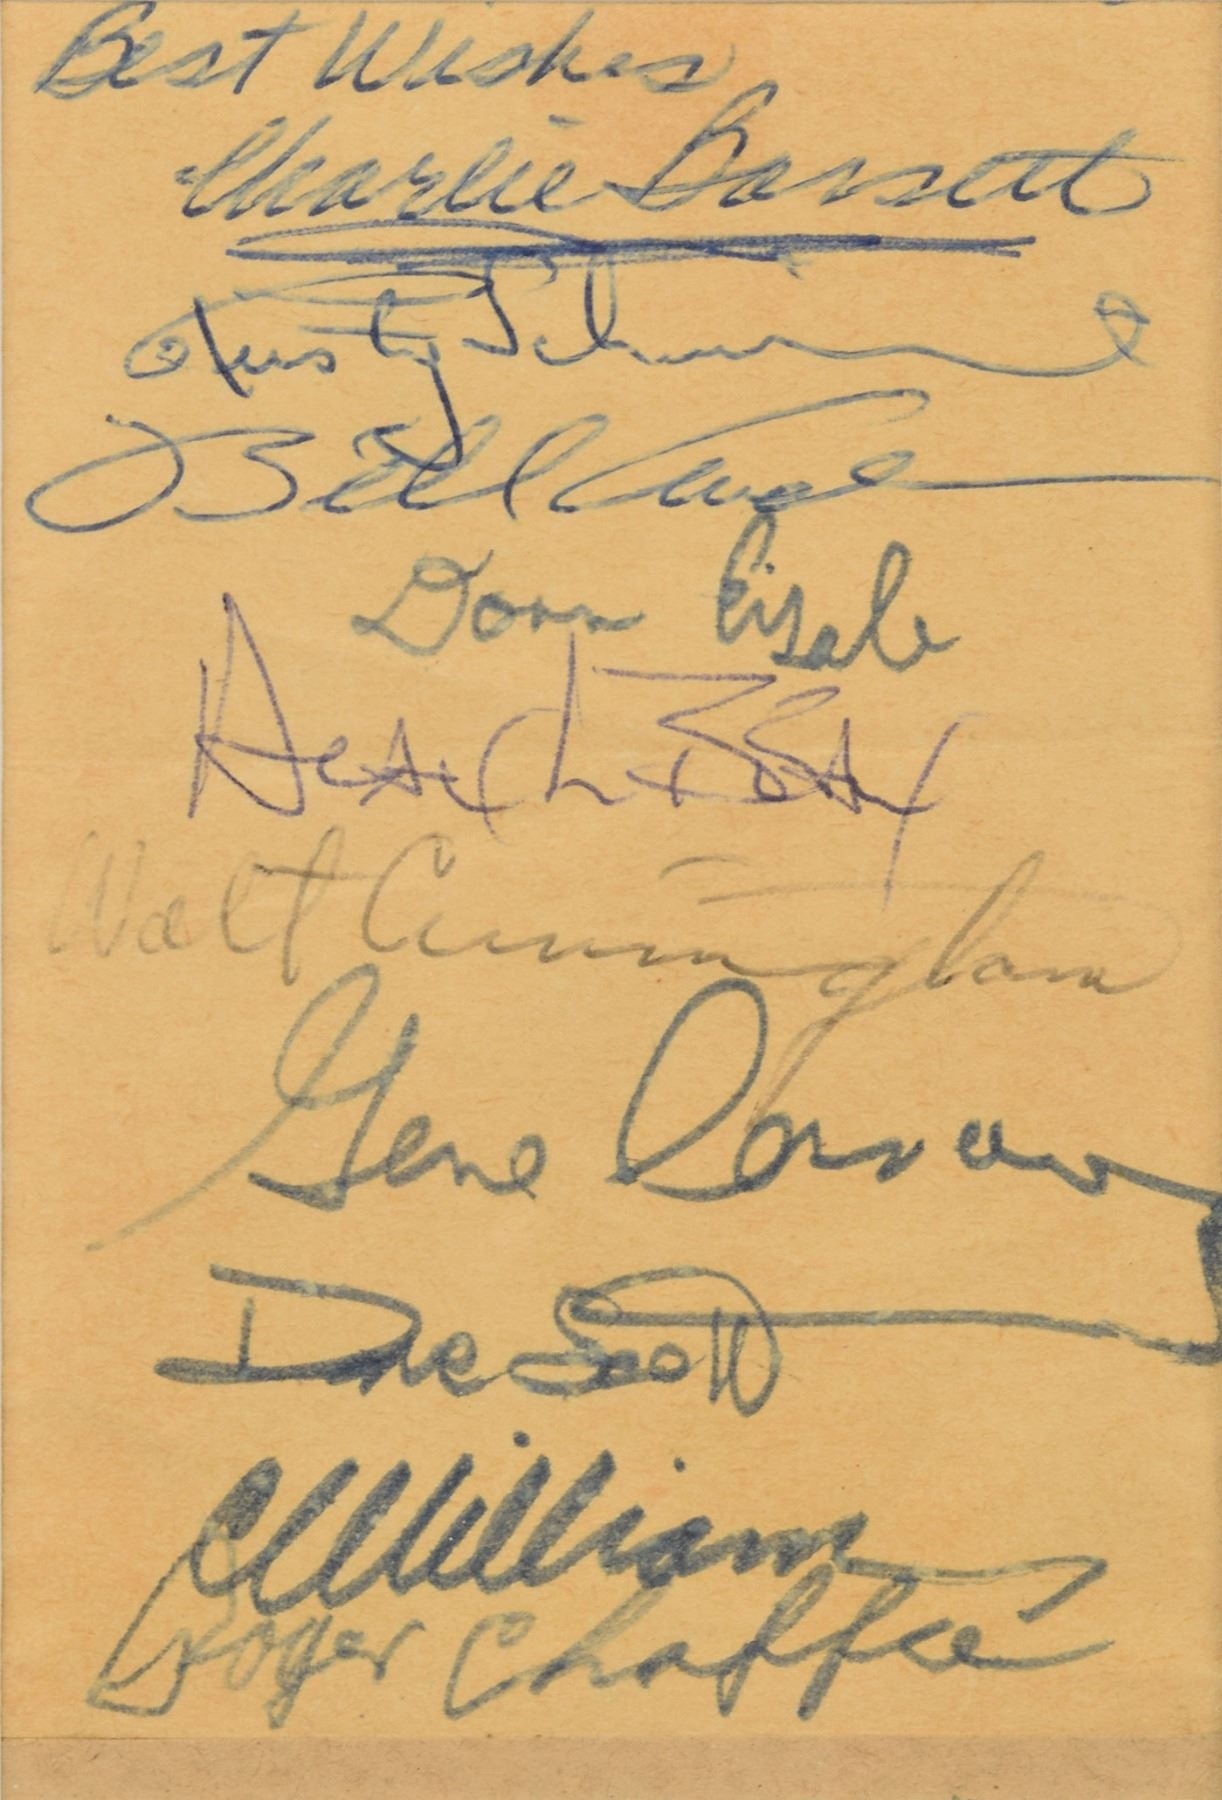 Best Wishes,
Charlie Bassett
Rusty Schweickart
Bill Anders
Donn Eisele
Buzz Aldrin
Walt Cunningham
Gene Cernan
Dave Scott
CC Williams
Roger Chaffee